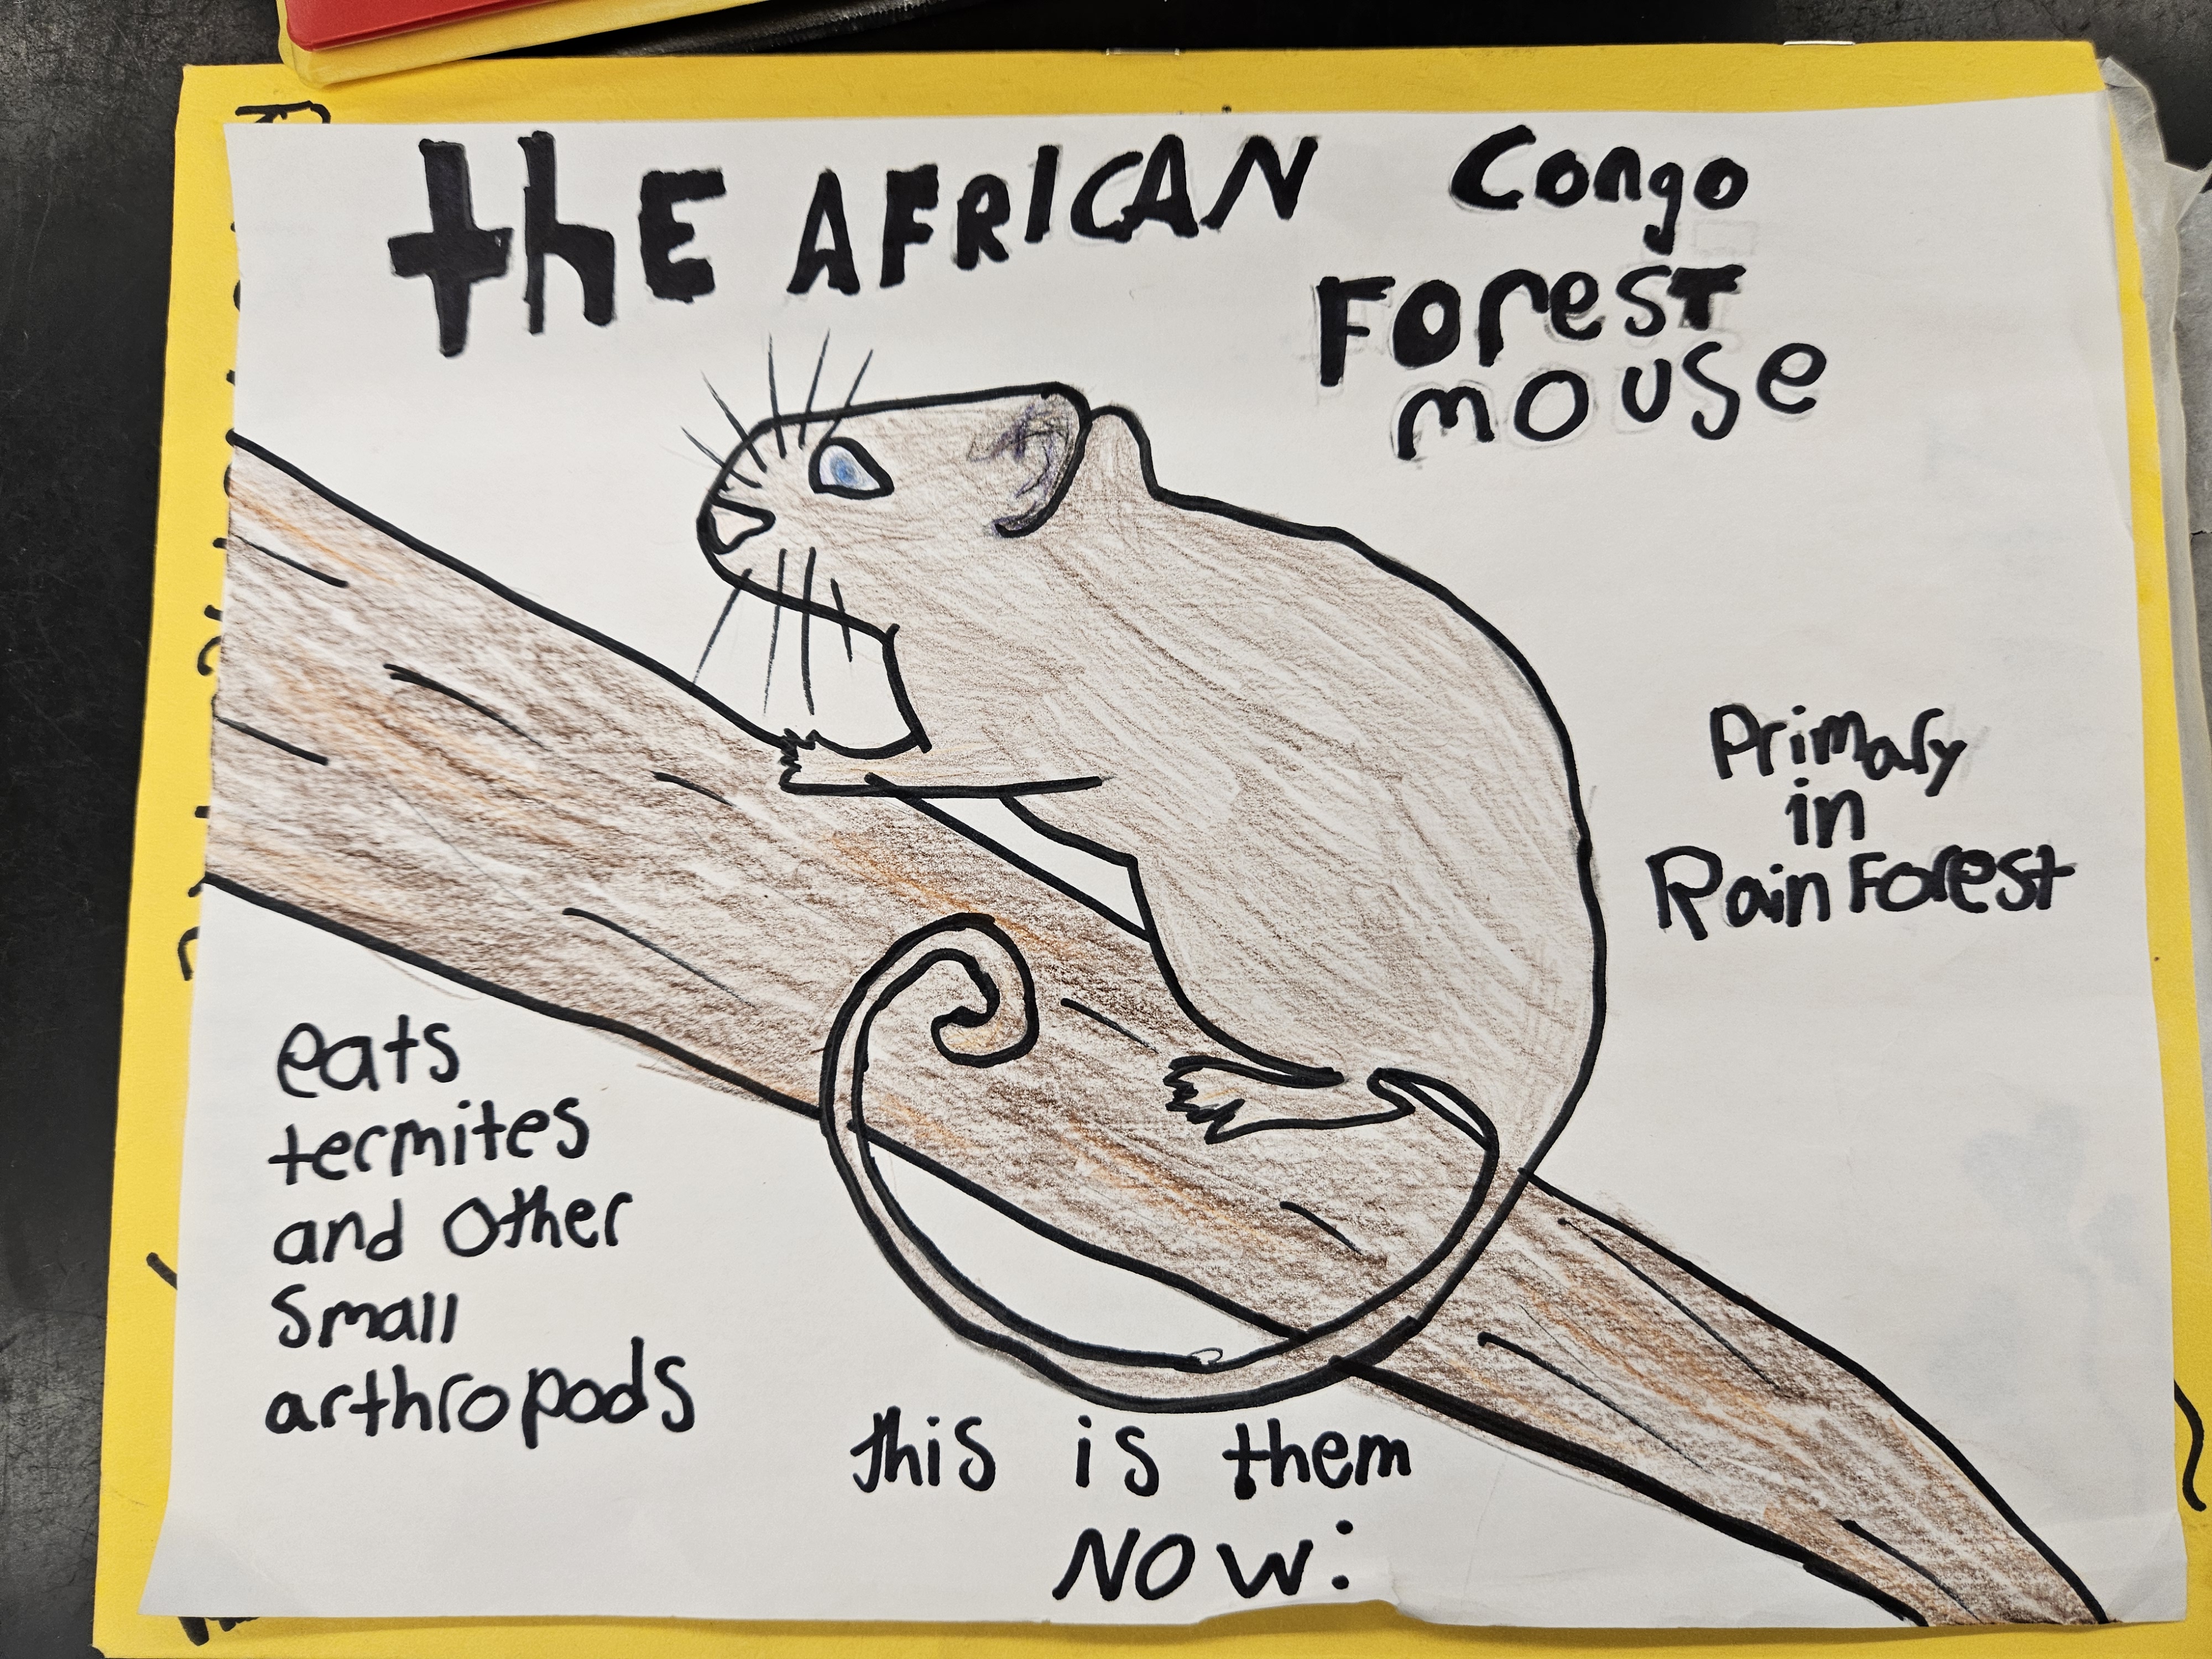 thE AFRICAN Congo
Forest
mouse
Primary
in
Rain Forest
eats
termites
and other
Small
arthropods
this is them
NOW: